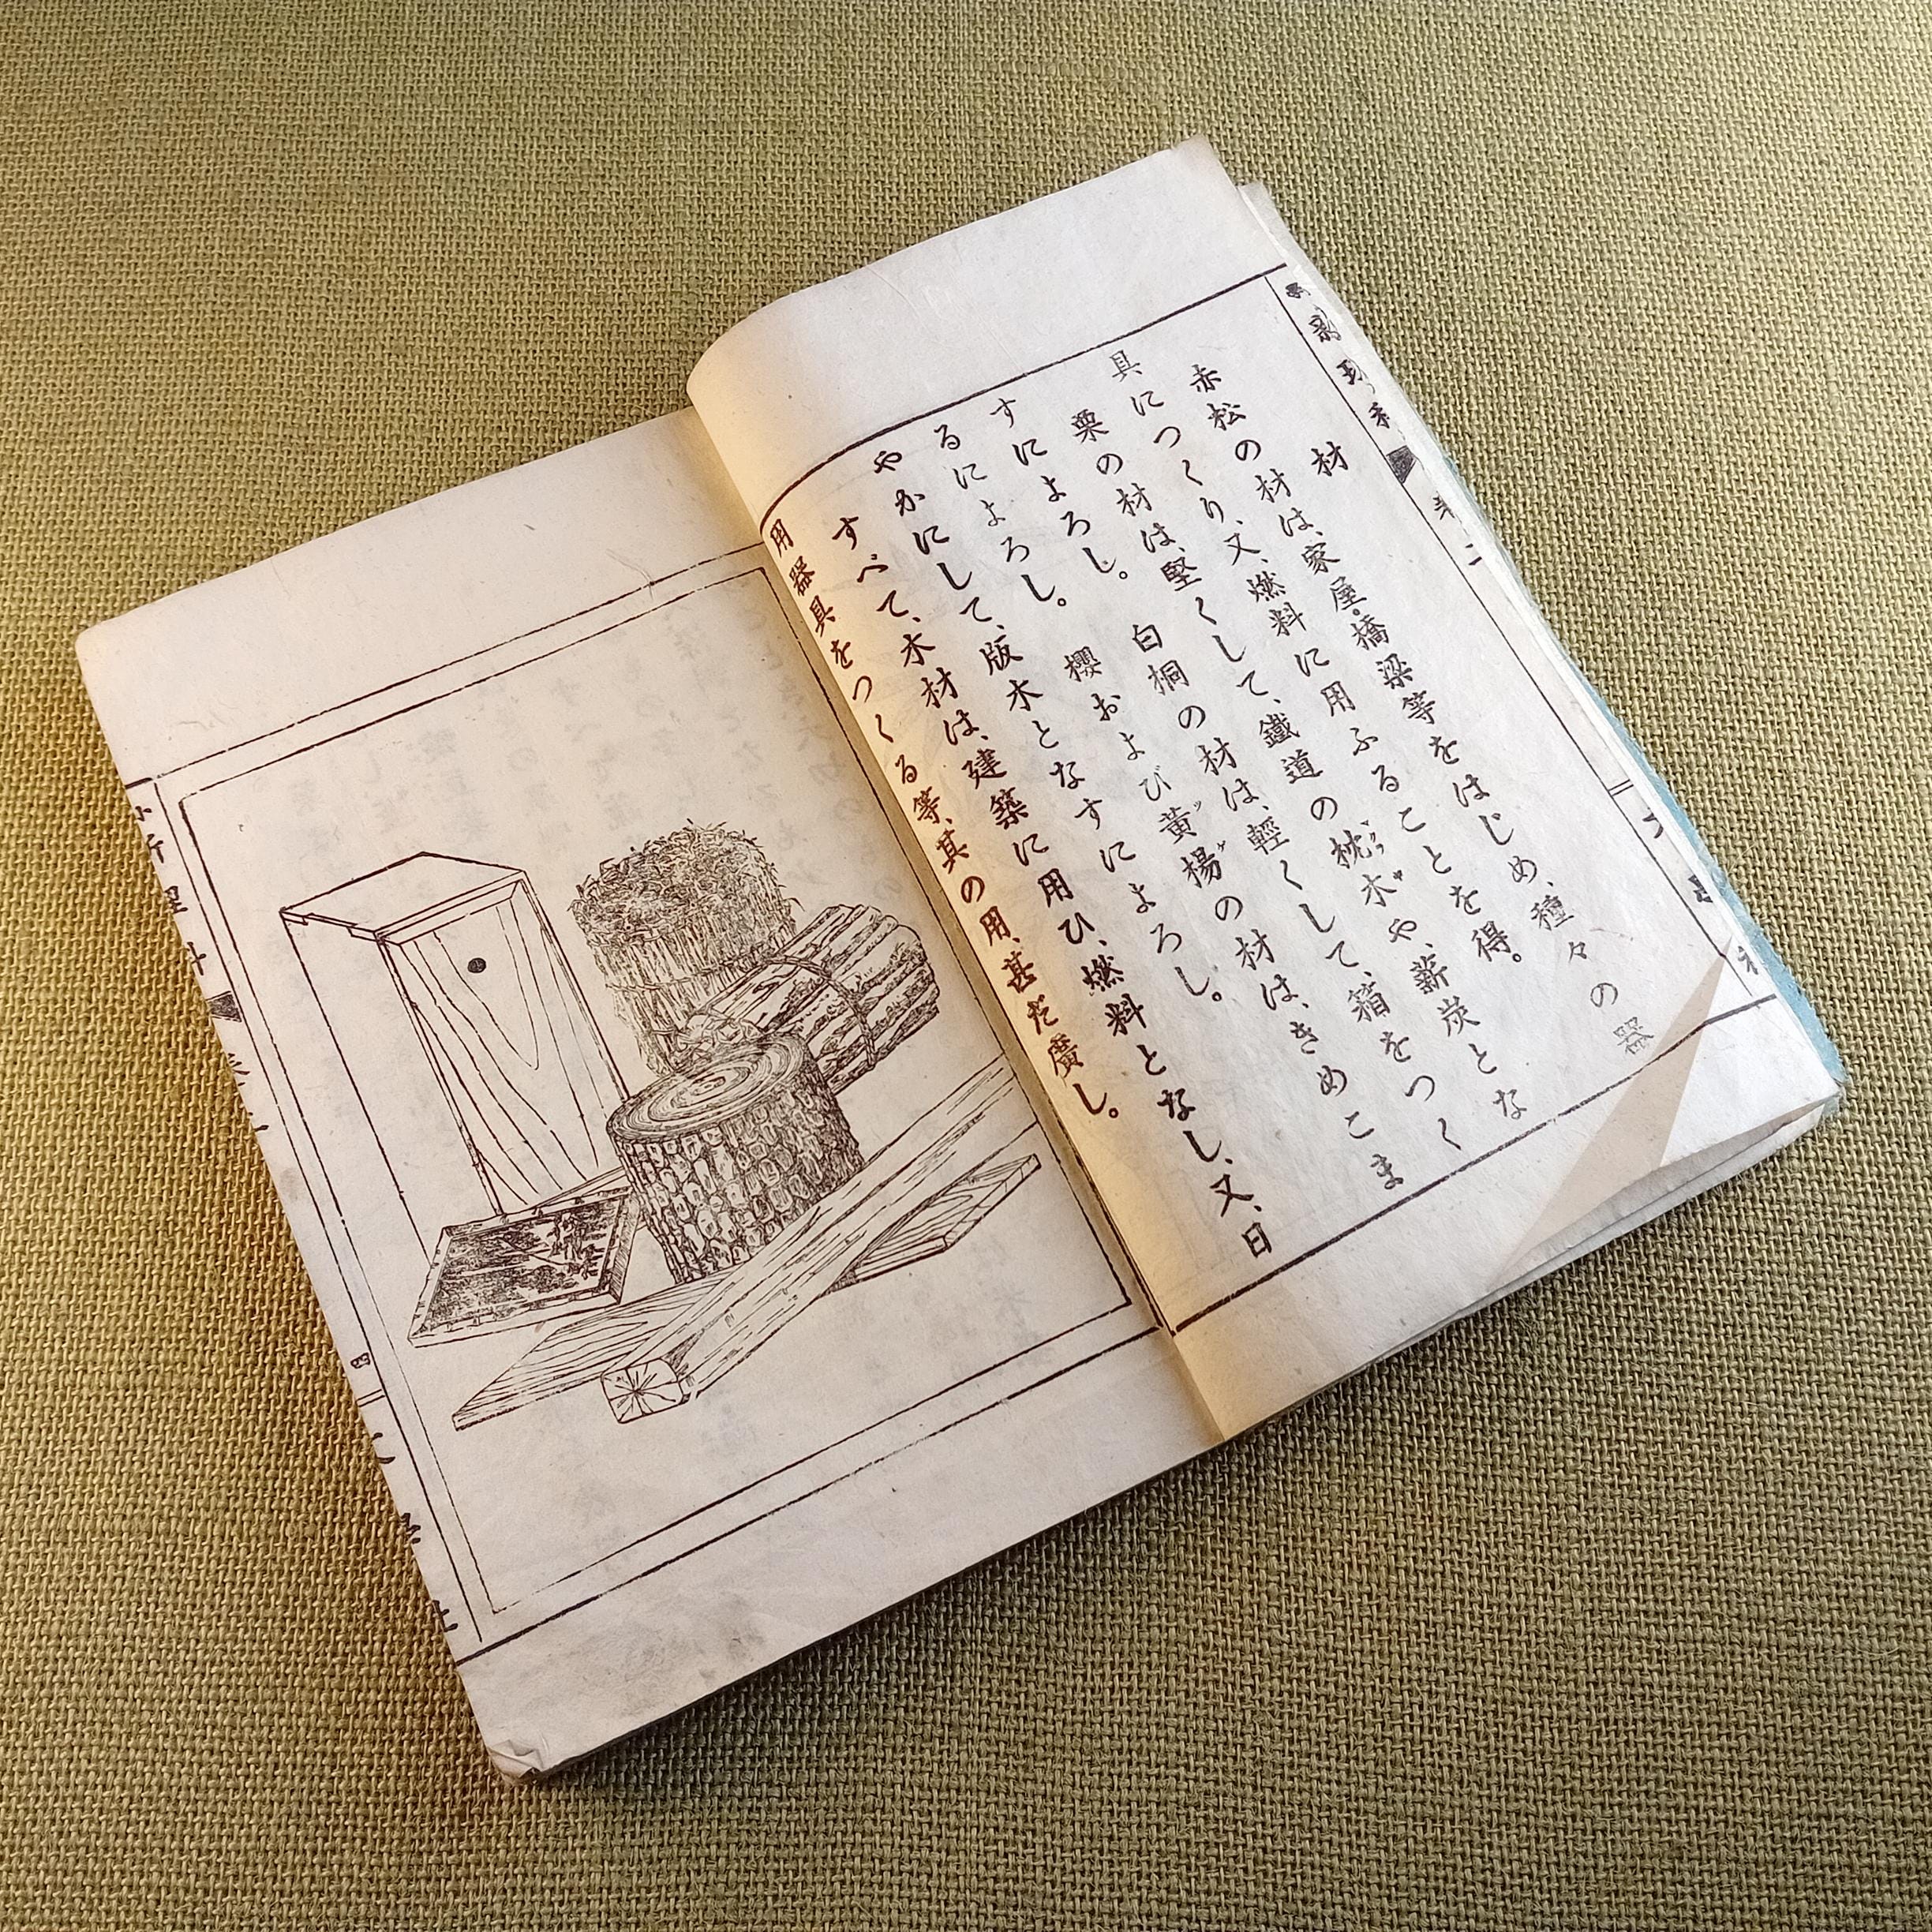 材
赤松の材は、家屋・橋梁等をはじめ、種々の器
具につくり、又、燃料に用ふることを得。
栗の材は、堅くして、鐵道の枕木や、薪炭とな
すによろし。 白桐の材は、輕くして、箱をつく
るによろし。 櫻および黃楊の材は、きめこま
やかにして、版木となすによろし。
すべて、木材は、建築に用ひ、燃料となし、又、日
用器具をつくる等、其の用、甚だ廣し。
四